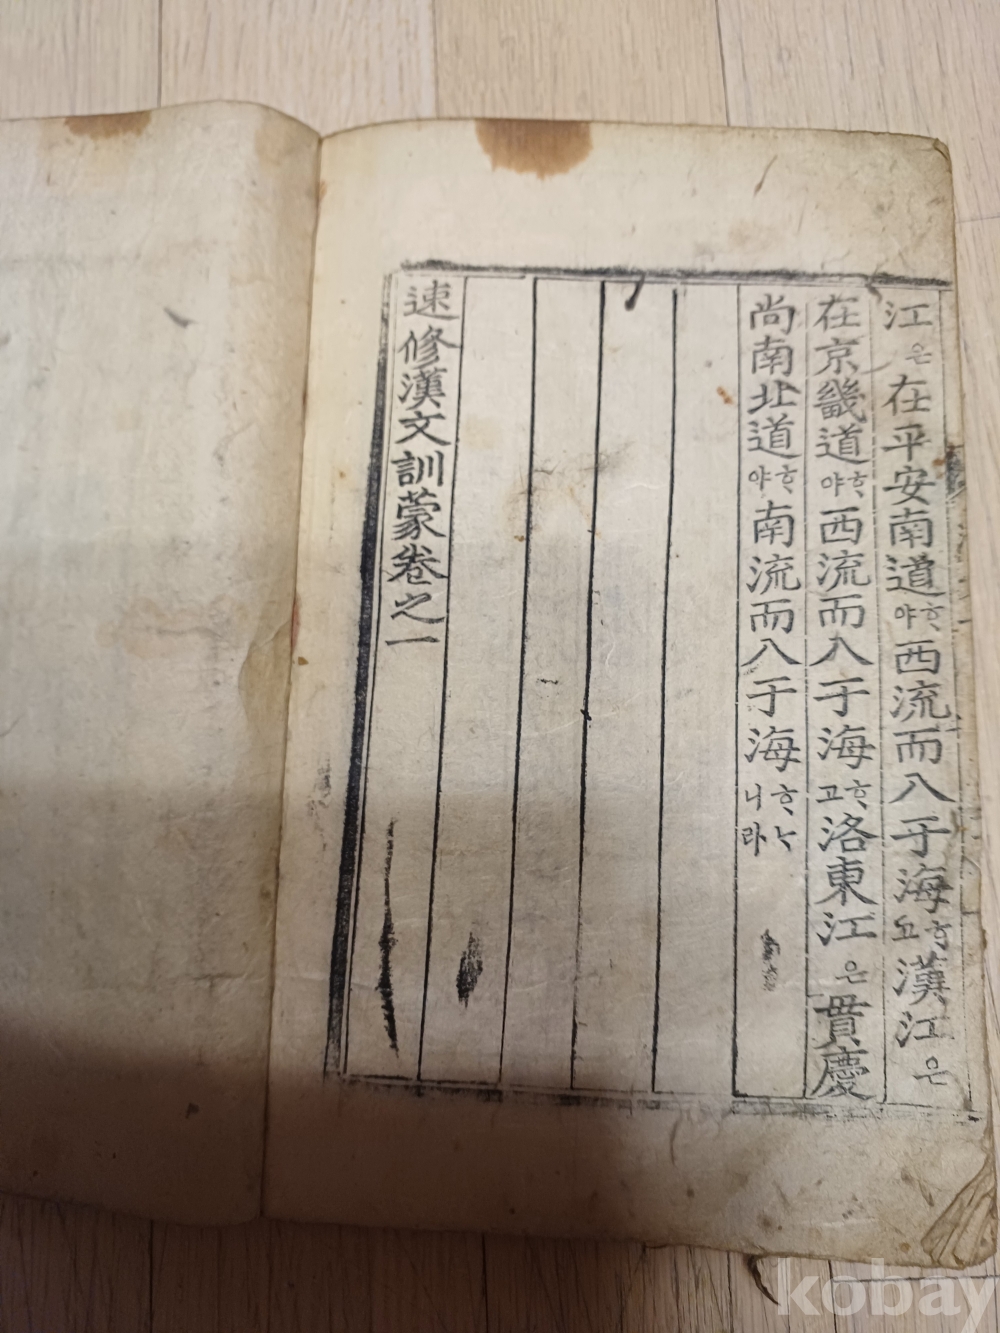 江은在平安南道ᄒᆞ야西流而入于海ᄒᆞ고漢江은
在京畿道ᄒᆞ야西流而入于海ᄒᆞ고洛東江은貫慶
尚南北道ᄒᆞ야南流而入于海ᄒᆞᄂᆞ니라
速修漢文訓蒙卷之一
kobay